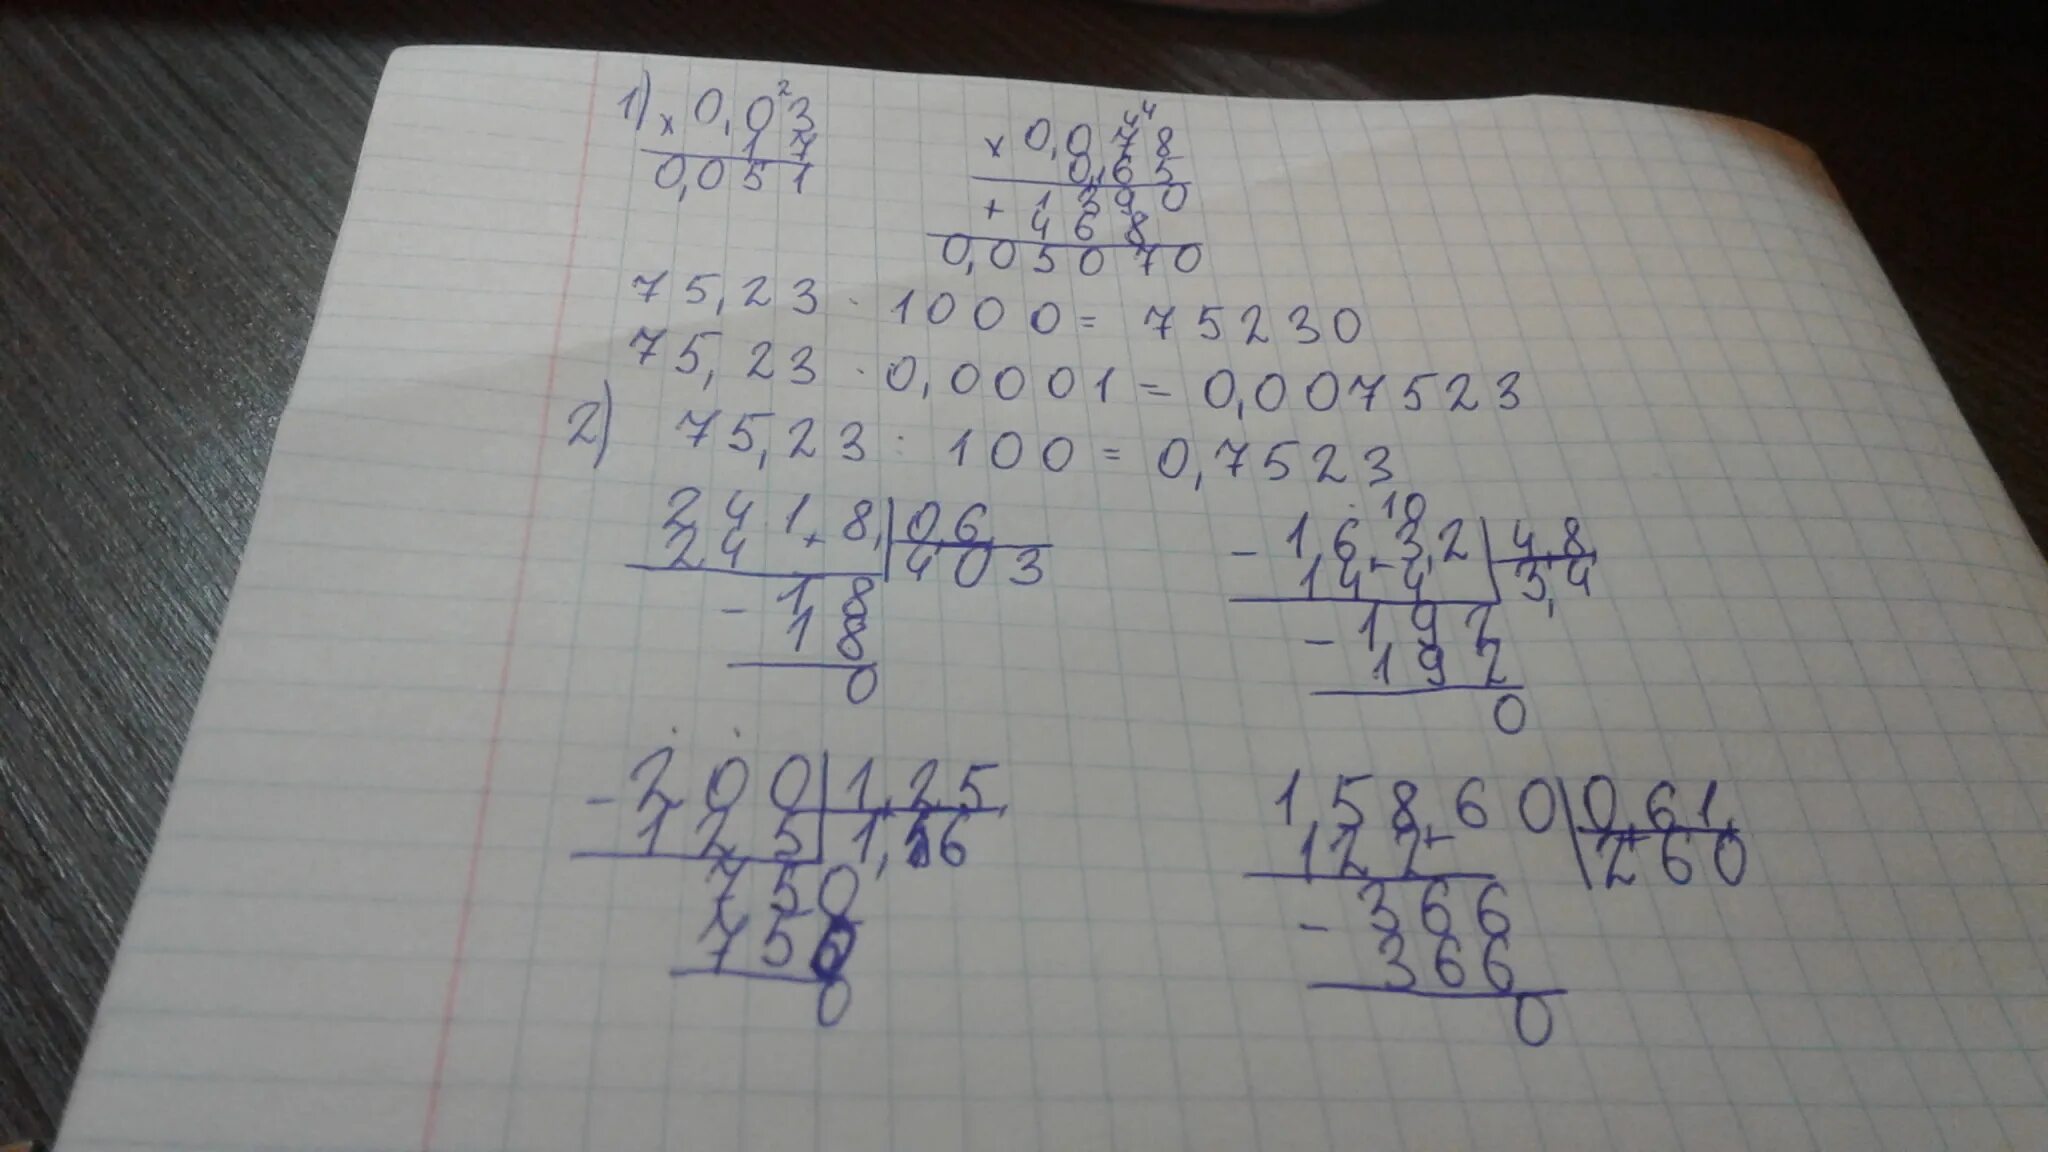 1) × 0,0²3
17
0,051
× 0,0⁴7⁴8
0,65
+ 1390
468
0,05070
75,23 · 1000 = 75230
75,23 · 0,0001 = 0,007523
2) 75,23 : 100 = 0,7523
241,8, | 0,6,
24 | 403
- 18
18
0
10
- 1,6,3,2 | 4,8,
144 | 3,4
- 192
192
0
- 200 | 1,25,
125 | 1,16
750
750
0
1,58,60 | 0,61,
122 | 260
- 366
366
0